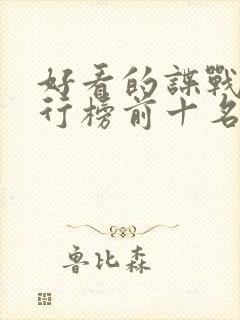 好看的諜戰
行榜前十名
魯比森